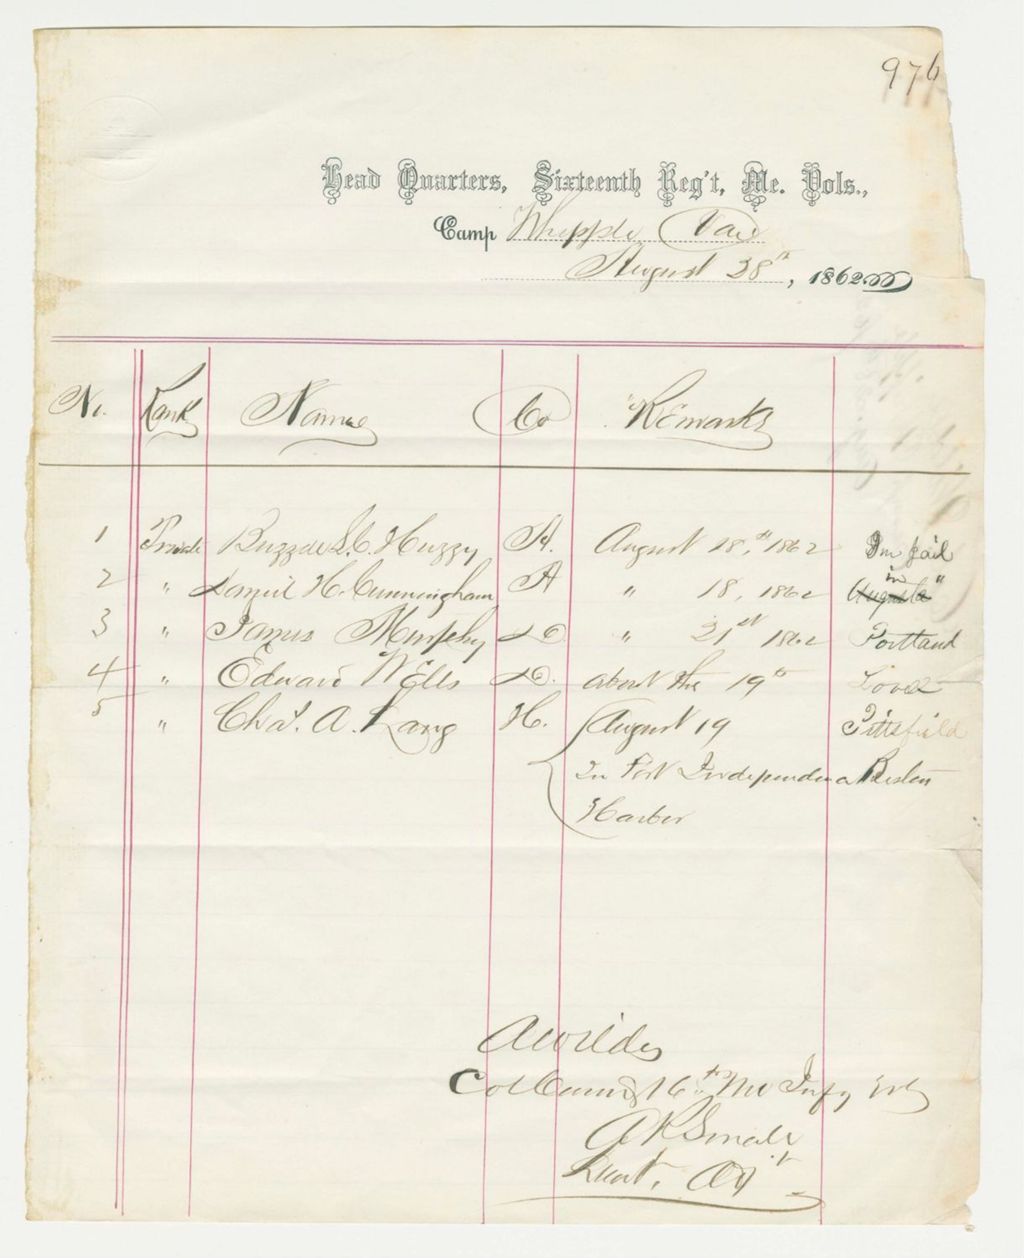 976
Head Quarters, Sixteenth Reg't, Me. Vols.,
Camp Whipple
August 28th, 1862
No. Rank Name Co Remarks
1 Private S. C. Huzzy A. August 18,th 1862 In jail
2 " Daniel H. Cunningham A " 18, 1862 in Augusta "
3 " James Murphy D " 21st 1862 Portland
4 " Edward Wells D. about the 19th Lovel
5 " Chas. A. Lang H. August 19 Pittsfield
In Fort Independence Boston
Harbor
A Wildes
Col Comdg 16th Me Infy Vol
A R Small
Lieut, Adjt